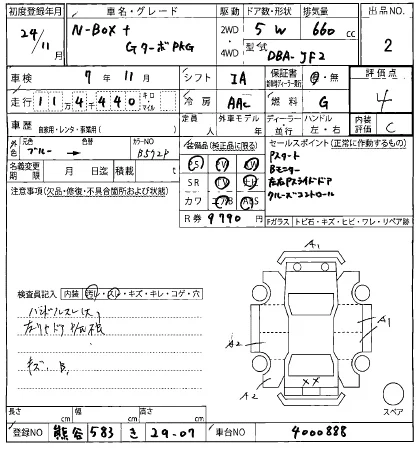 初度登録年月 24年11月
車名・グレード N-BOX + Gターボ PKG
駆動 2WD・4WD
ドア数・形状 5 W
排気量 660 cc
型式 DBA-JF2
出品NO. 2
車検 7年11月
シフト IA
保証書 新車時保証書・ディーラー発行 有・無
評価点 4
走行 114440 キロ・マイル
冷房 AAC
燃料 G
車歴 自家用・レンタ・事業用( )
定員 人
外車モデル 年
ディーラー・並行
ハンドル 左・右
内装評価 C
外色 元色 ブルー → 色替
カラーNO B572P
名義変更期限 月 日迄
積載 t
装備品(純正品に限る)
PS PW
SR
カワ エアB ABS
R券 9790
セールスポイント(正常に作動するもの)
Pスタート
Bモニター
左右Pスライドドア
クルーズコントロール
注意事項(欠品・修復・不具合箇所および状態)
Fガラス トビ石・キズ・ヒビ・ワレ・リペア跡
検査員記入 内装 汚レ・スレ・キズ・キレ・コゲ・穴
ハンドルスレ(大)
キズ、B,
A1
A1
A2
A2
XX
スペア
長さ cm 幅 cm 高さ cm
登録NO 熊谷 583 き 29-07
車台NO 4000888